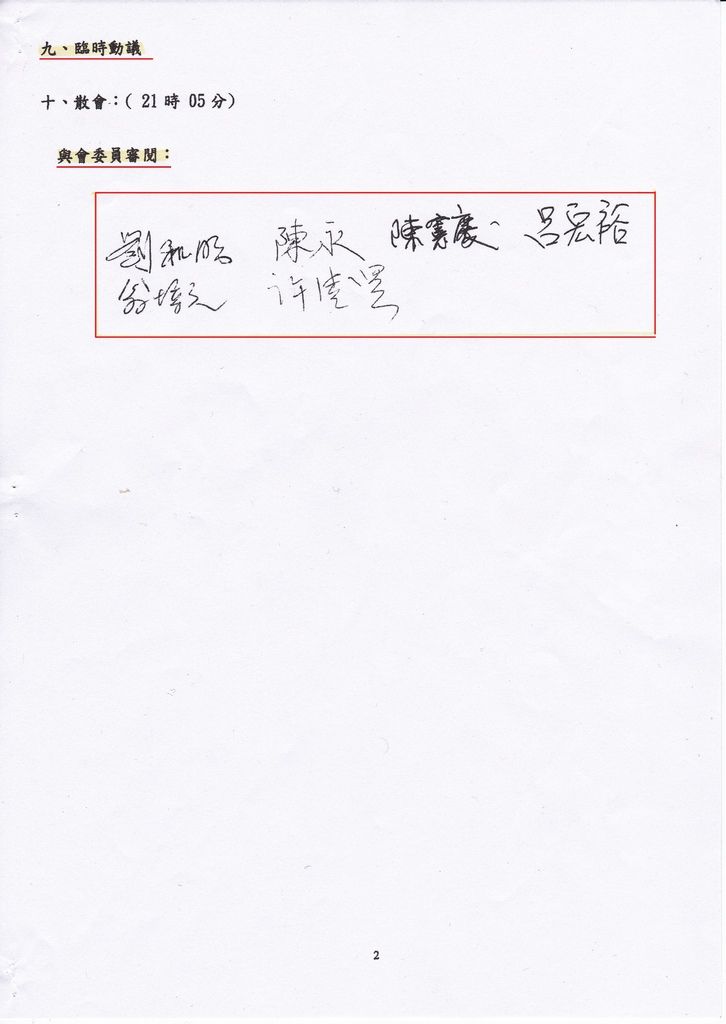 九、臨時動議
十、散會：( 21 時 05 分)
與會委員審閱：
劉 陳永 陳憲慶 呂宏裕
翁 许
2